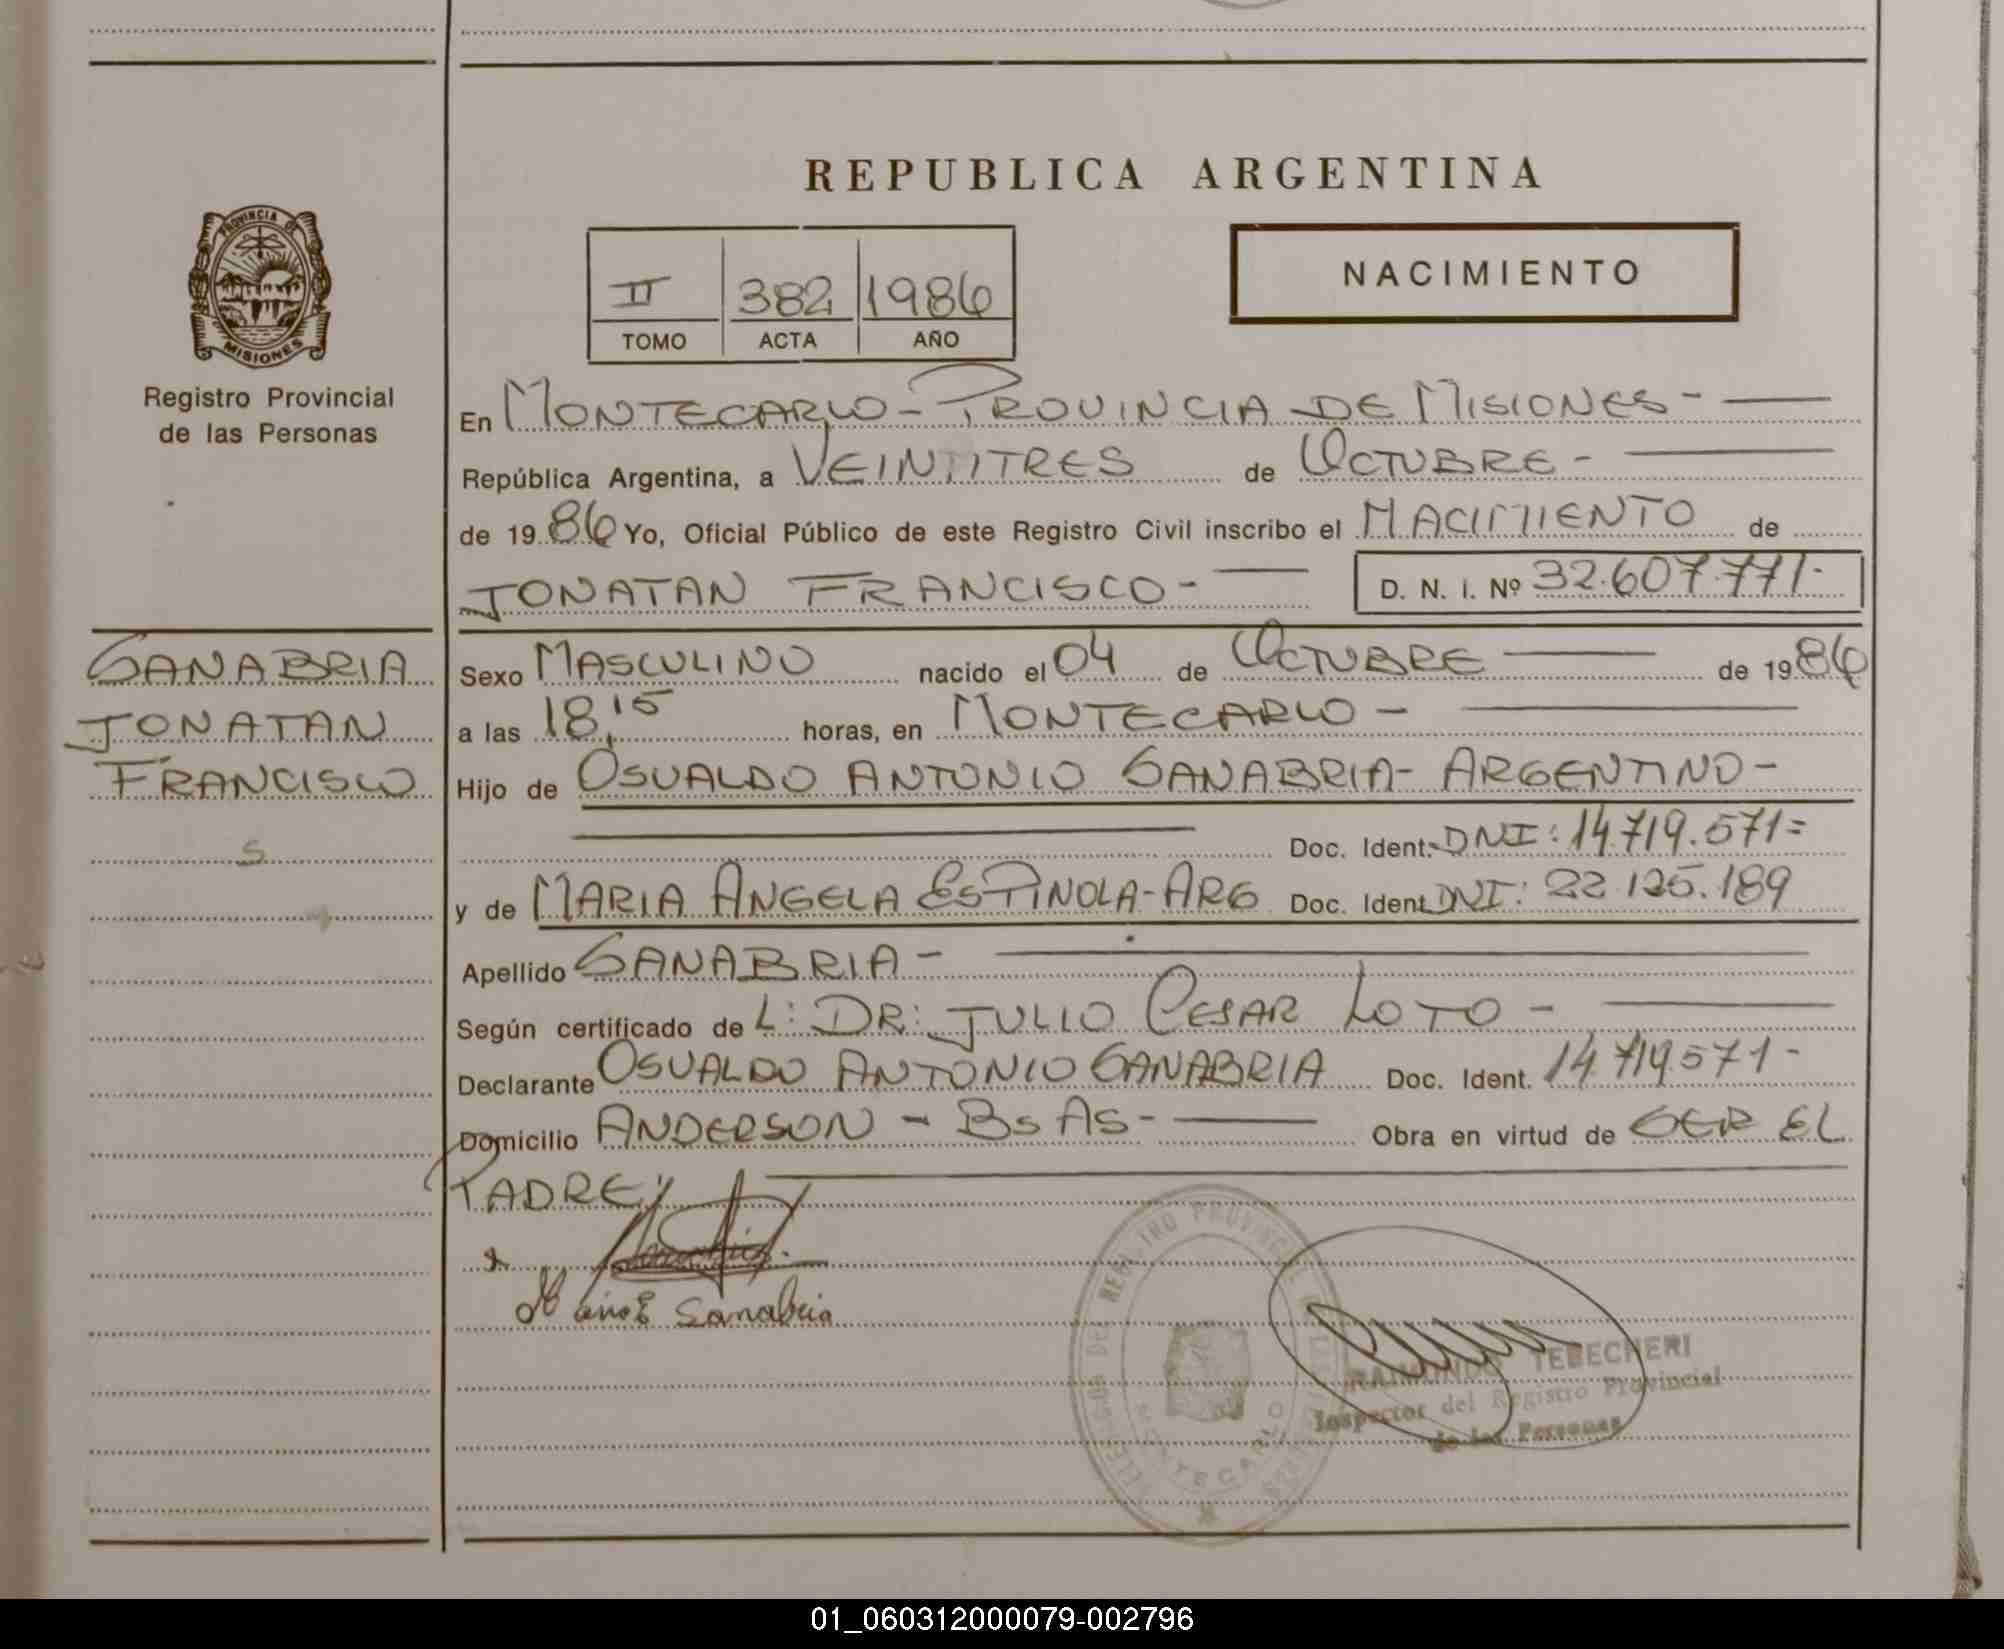 REPUBLICA ARGENTINA
PROVINCIA DE
MISIONES
Registro Provincial
de las Personas
II 382 1986
TOMO ACTA AÑO
NACIMIENTO
En MONTECARLO - PROVINCIA DE MISIONES -
República Argentina, a VEINTITRES de OCTUBRE -
de 1986 Yo, Oficial Público de este Registro Civil inscribo el NACIMIENTO de
JONATAN FRANCISCO - D. N. I. Nº 32.607.771-
SANABRIA
JONATAN
FRANCISCO
S
Sexo MASCULINO nacido el 04 de OCTUBRE de 1986
a las 18,15 horas, en MONTECARLO -
Hijo de OSVALDO ANTONIO SANABRIA - ARGENTINO -
Doc. Ident. DNI: 14.719.571=
y de MARIA ANGELA ESPINOLA - ARG Doc. Ident DNI: 22.125.189
Apellido SANABRIA -
Según certificado de L: DR: JULIO CESAR LOTO -
Declarante OSVALDO ANTONIO SANABRIA Doc. Ident. 14.719.571-
Domicilio ANDERSON - Bs AS - Obra en virtud de SER EL
PADRE
Sanabria
MONTECARLO
RAIMUNDO TEBECHERI
Inspector del Registro Provincial
de las Personas
01_060312000079-002796